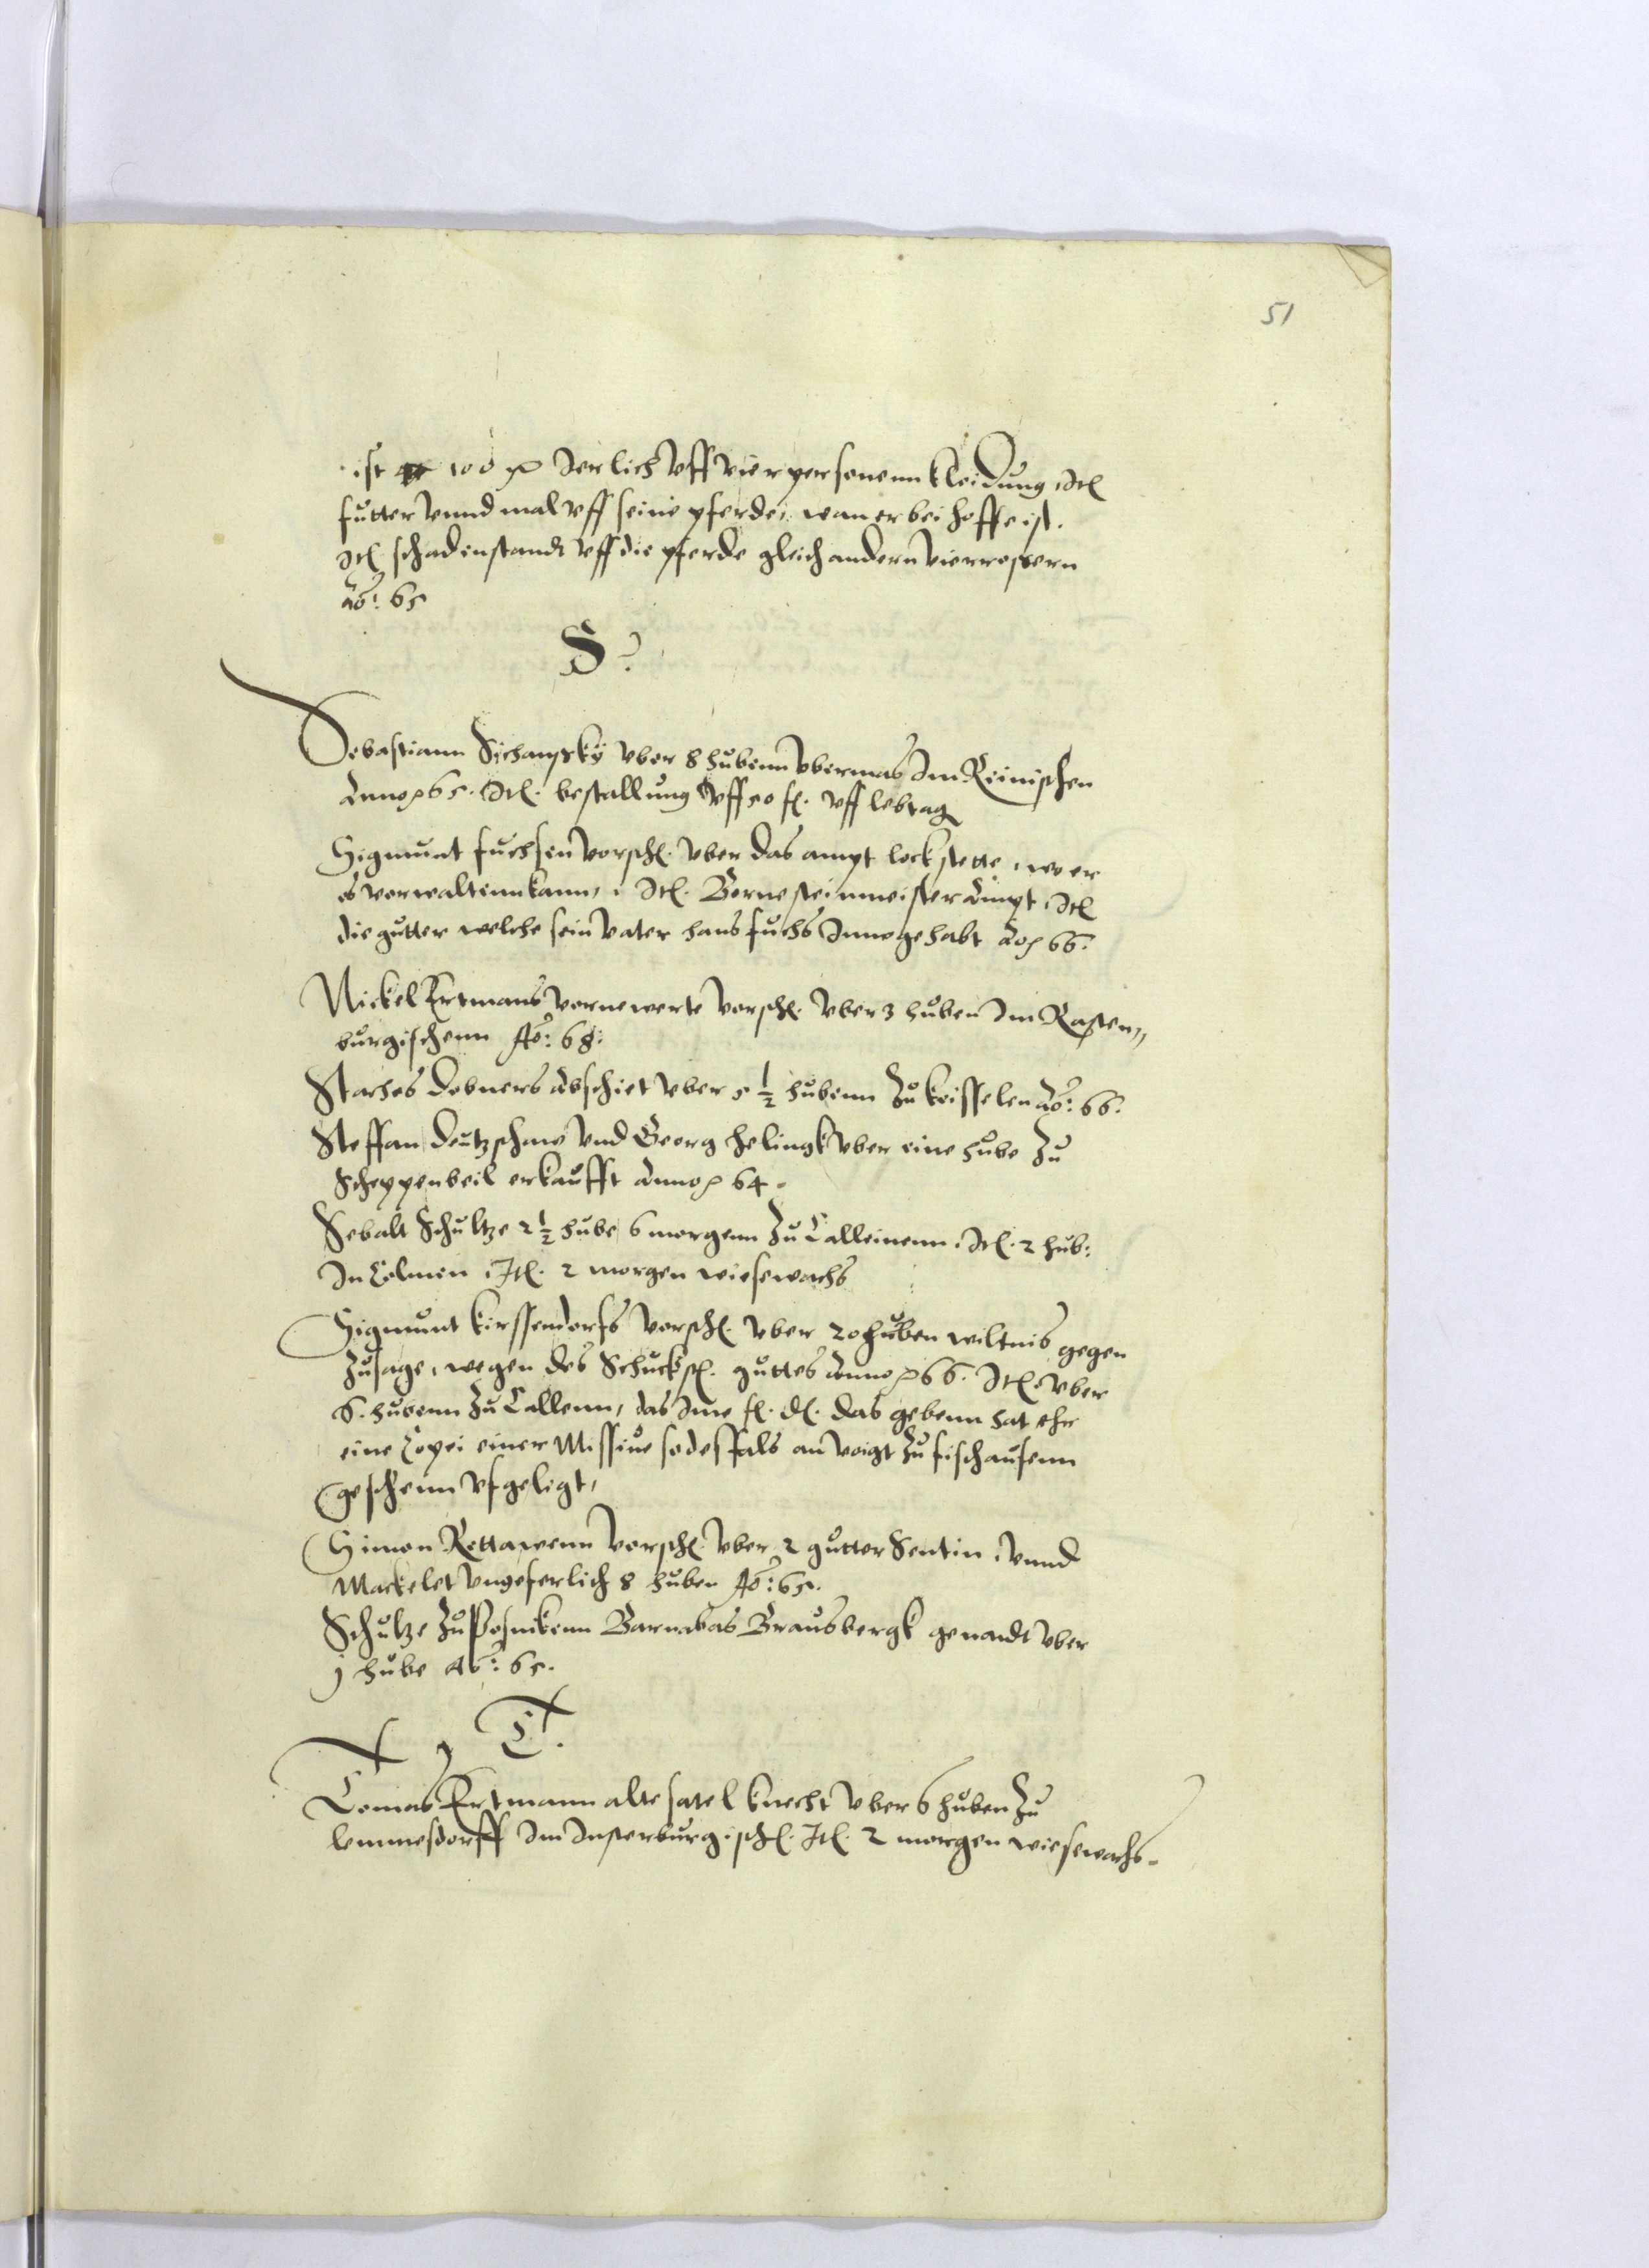 51
ist 100 Jerlich vff vier personenn kleidung, Itl
futter vnnd mal vff seine pferde, wan er bei hoffe ist.
Itl schadenstandt vff die pferde gleich andern vierrossern
Ao: 65
S.
Sebastiann Sichansky vber 8 hubenn vbermas Im Reinischen
Anno 65. Itl. bestallung vff 50 fl. vff lebtag
Sigmunt fuchsen vorschr. vber das ampt lockstette, wo er
es verwaltenn kann, Itl. Bornesteinmeister Ampt, Itl
die gutter welche sein vater hans fuchs Inne gehabt Ao 66.
Nickel Ertmans vornewerte vorschr. vber 3 huben Im Rasten„
burgischenn Ao: 68:
Staches Dobners abschiet vber 5 ½ hubenn Zu keisselen Ao: 66.
Steffan Deutzschme vnd Georg helingk vber eine hube Zu
Scheppenbeil erkaufft Anno 64.
Sebalt Schultze 2 ½ hube 6 morgenn Zu Calleinenn. Itl. 2 hub:
In Colmen, Itl. 2 morgen wiesewachs
Sigmunt kirssendorfs vorschr. vber 20 huben wiltnis gegen
Zusage, wegen des guttes Anno 66. Itl. vber
6. hubenn Zu Callenn, das Ime fl. dl. das gebenn hat ehr
eine Copei einer Missiue so desfals an voigt Zu fischausenn
geschenn vfgeligt,
Simon Rettawenn vorschr. vber 2 gutter Sentin, vnnd
Mackelet vngeferlich 8 huben Ao: 65.
Schultze Zu Posnikenn Barnabas Brausbergk genandt vber
j hube Ao: 65.
T.
Tomas Ertmann alte satel knecht vber 6 huben Zu
lemmesdorff Im Insterburgisch. Itl. 2 morgen wiesewachs.